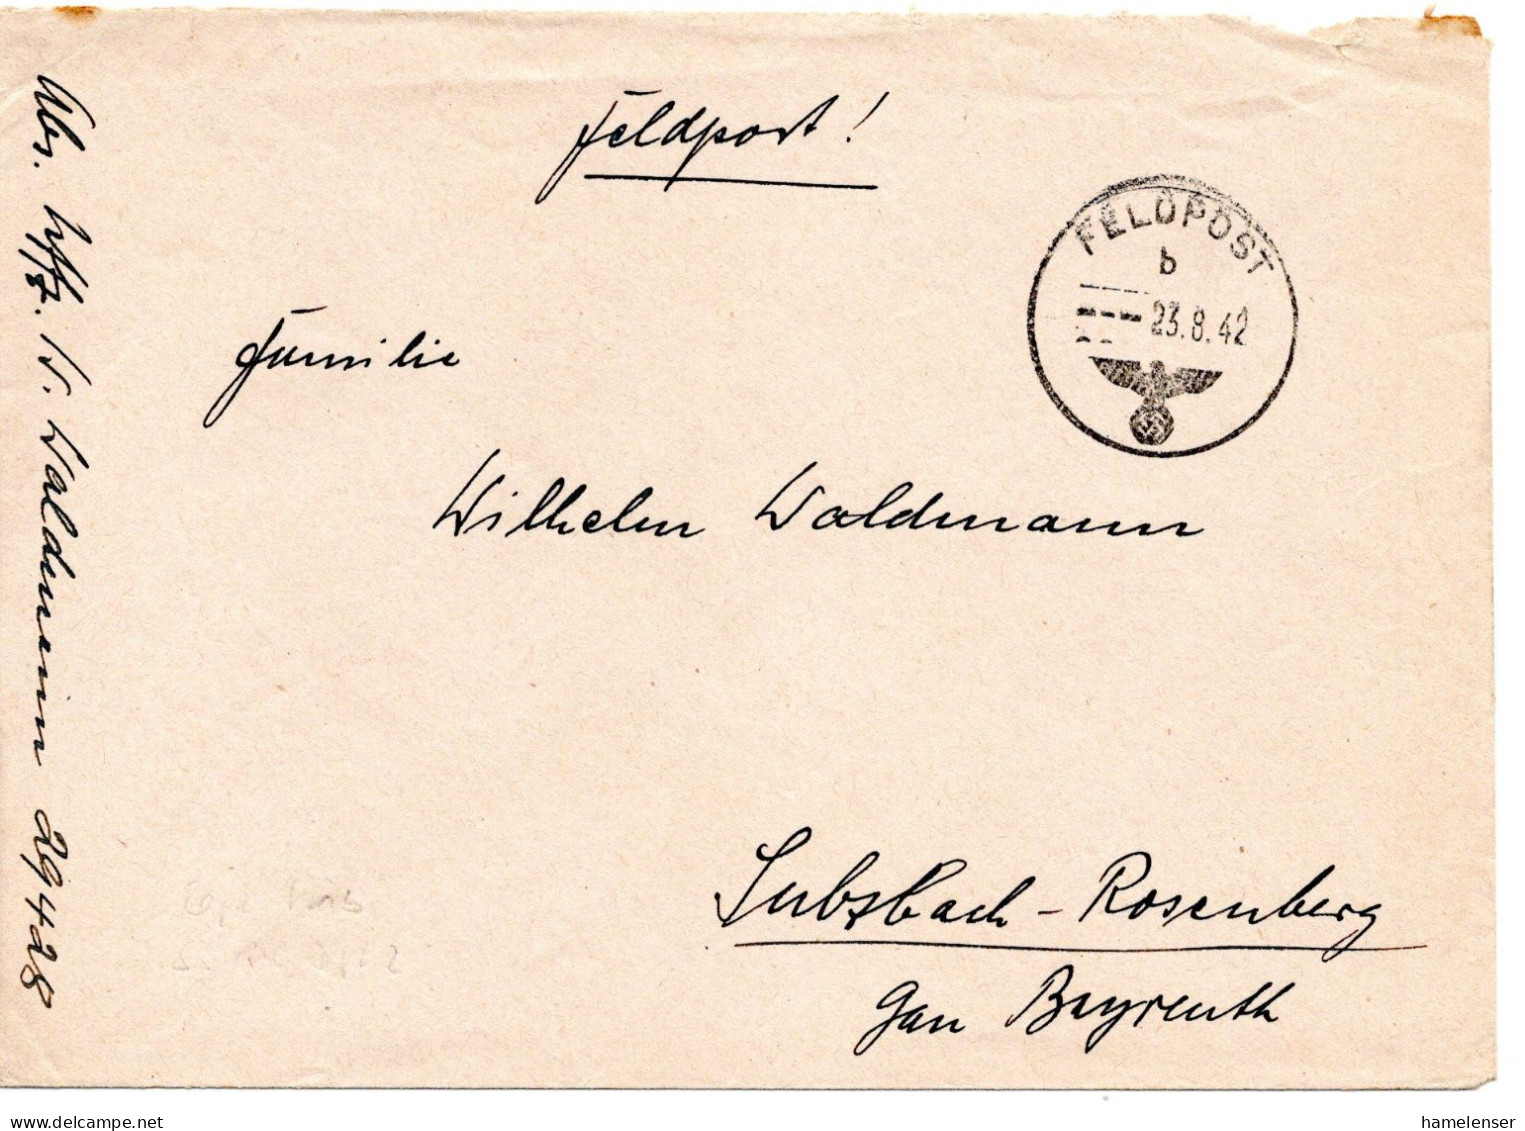 Feldpost!
FELDPOST
b
23.8.42
Familie
Wilhelm Waldmann
Sulzbach-Rosenberg
Gau Bayreuth
Abs. Uffz. W. Waldmann 29428
www.delcampe.net
hamelenser